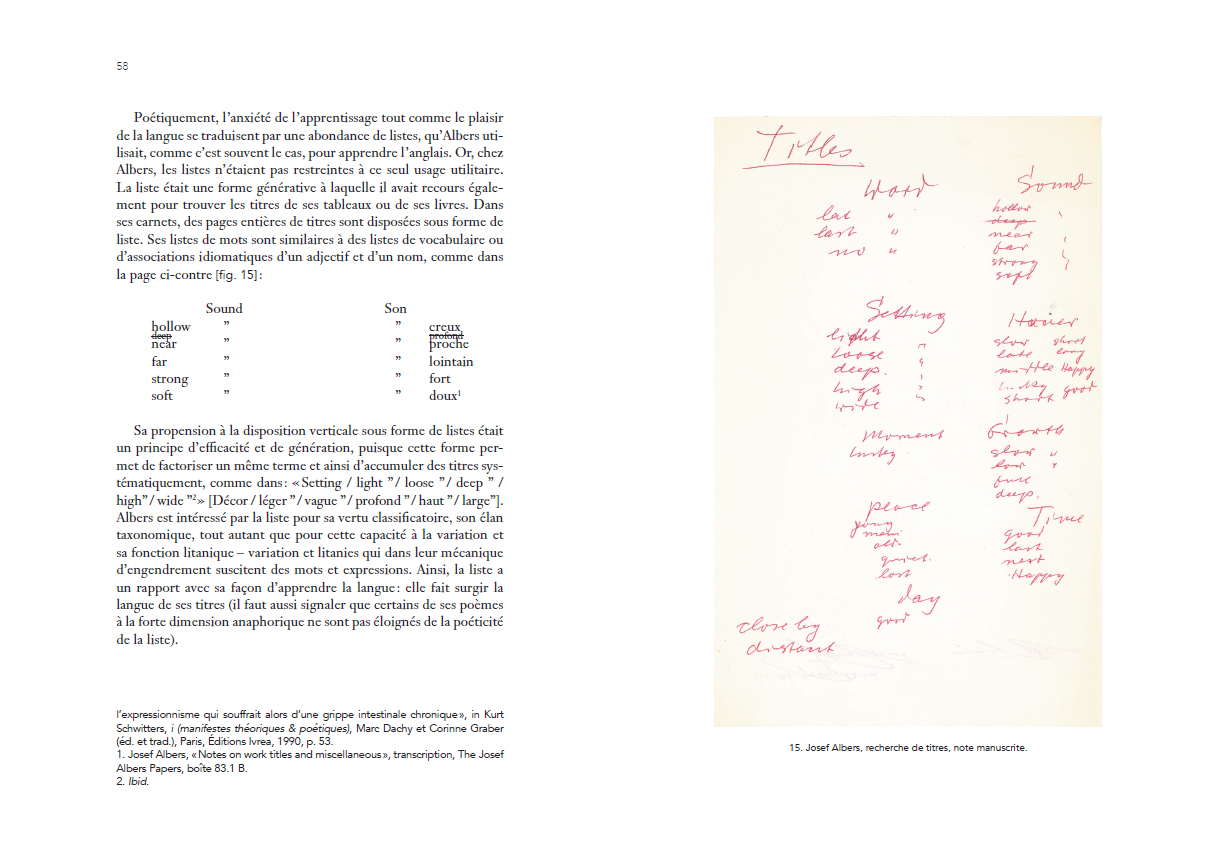 58
Poétiquement, l’anxiété de l’apprentissage tout comme le plaisir
de la langue se traduisent par une abondance de listes, qu’Albers uti-
lisait, comme c’est souvent le cas, pour apprendre l’anglais. Or, chez
Albers, les listes n’étaient pas restreintes à ce seul usage utilitaire.
La liste était une forme générative à laquelle il avait recours égale-
ment pour trouver les titres de ses tableaux ou de ses livres. Dans
ses carnets, des pages entières de titres sont disposées sous forme de
liste. Ses listes de mots sont similaires à des listes de vocabulaire ou
d’associations idiomatiques d’un adjectif et d’un nom, comme dans
la page ci-contre [fig. 15] :
Sound Son
hollow ” ” creux
deep profond
near ” ” proche
far ” ” lointain
strong ” ” fort
soft ” ” doux¹
Sa propension à la disposition verticale sous forme de listes était
un principe d’efficacité et de génération, puisque cette forme per-
met de factoriser un même terme et ainsi d’accumuler des titres sys-
tématiquement, comme dans : « Setting / light ”/ loose ”/ deep ” /
high”/ wide ”²» [Décor / léger ”/ vague ”/ profond ”/ haut ”/ large”].
Albers est intéressé par la liste pour sa vertu classificatoire, son élan
taxonomique, tout autant que pour cette capacité à la variation et
sa fonction litanique – variation et litanies qui dans leur mécanique
d’engendrement suscitent des mots et expressions. Ainsi, la liste a
un rapport avec sa façon d’apprendre la langue : elle fait surgir la
langue de ses titres (il faut aussi signaler que certains de ses poèmes
à la forte dimension anaphorique ne sont pas éloignés de la poéticité
de la liste).
l’expressionnisme qui souffrait alors d’une grippe intestinale chronique», in Kurt
Schwitters, i (manifestes théoriques & poétiques), Marc Dachy et Corinne Graber
(éd. et trad.), Paris, Éditions Ivrea, 1990, p. 53.
1. Josef Albers, « Notes on work titles and miscellaneous », transcription, The Josef
Albers Papers, boîte 83.1 B.
2. Ibid.
Titles
Word
last "
no "
Sound
hollow
deep
near
far
strong
soft
Setting
light
loose
deep.
high
wide
slow short
late long
Happy
lucky good
short
Moment
lucky
Growth
slow "
low "
full
deep.
place
old.
quiet.
lost
Time
good
last
next
Happy
day
good
close by
distant
15. Josef Albers, recherche de titres, note manuscrite.